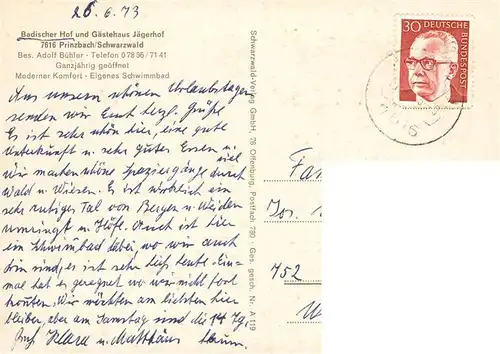 26.6.73
Badischer Hof und Gästehaus Jägerhof
7616 Prinzbach/Schwarzwald
Bes. Adolf Bühler - Telefon 07836/7141
Ganzjährig geöffnet
Moderner Komfort - Eigenes Schwimmbad
Aus unsern schönen Urlaubstagen
senden wir Euch herzl. Grüße
Es ist sehr schön hier, eine gute
Unterkunft u. sehr gutes Essen
Wir machen schöne Spaziergänge durch
Wald u. Wiesen. Es ist wirklich ein
sehr ruhiges Tal von Bergen u. Weiden
umringt u. Höfe. Auch ist hier
ein Schwimbad dabei, wo wir auch
drin sind, es ist sehr heiß heute. Ein-
mal hat es geregnet wo wir nicht fort
konnten. Wir möchten am liebsten hier
bleiben, aber am Samstag sind die 14 Tg.
Klara u. Matthäus
Schwarzwald-Verlag GmbH, 76 Offenburg, Postfach 780 · Ges. gesch. Nr. A 119
30
DEUTSCHE
BUNDESPOST
Fam
Jos.
752